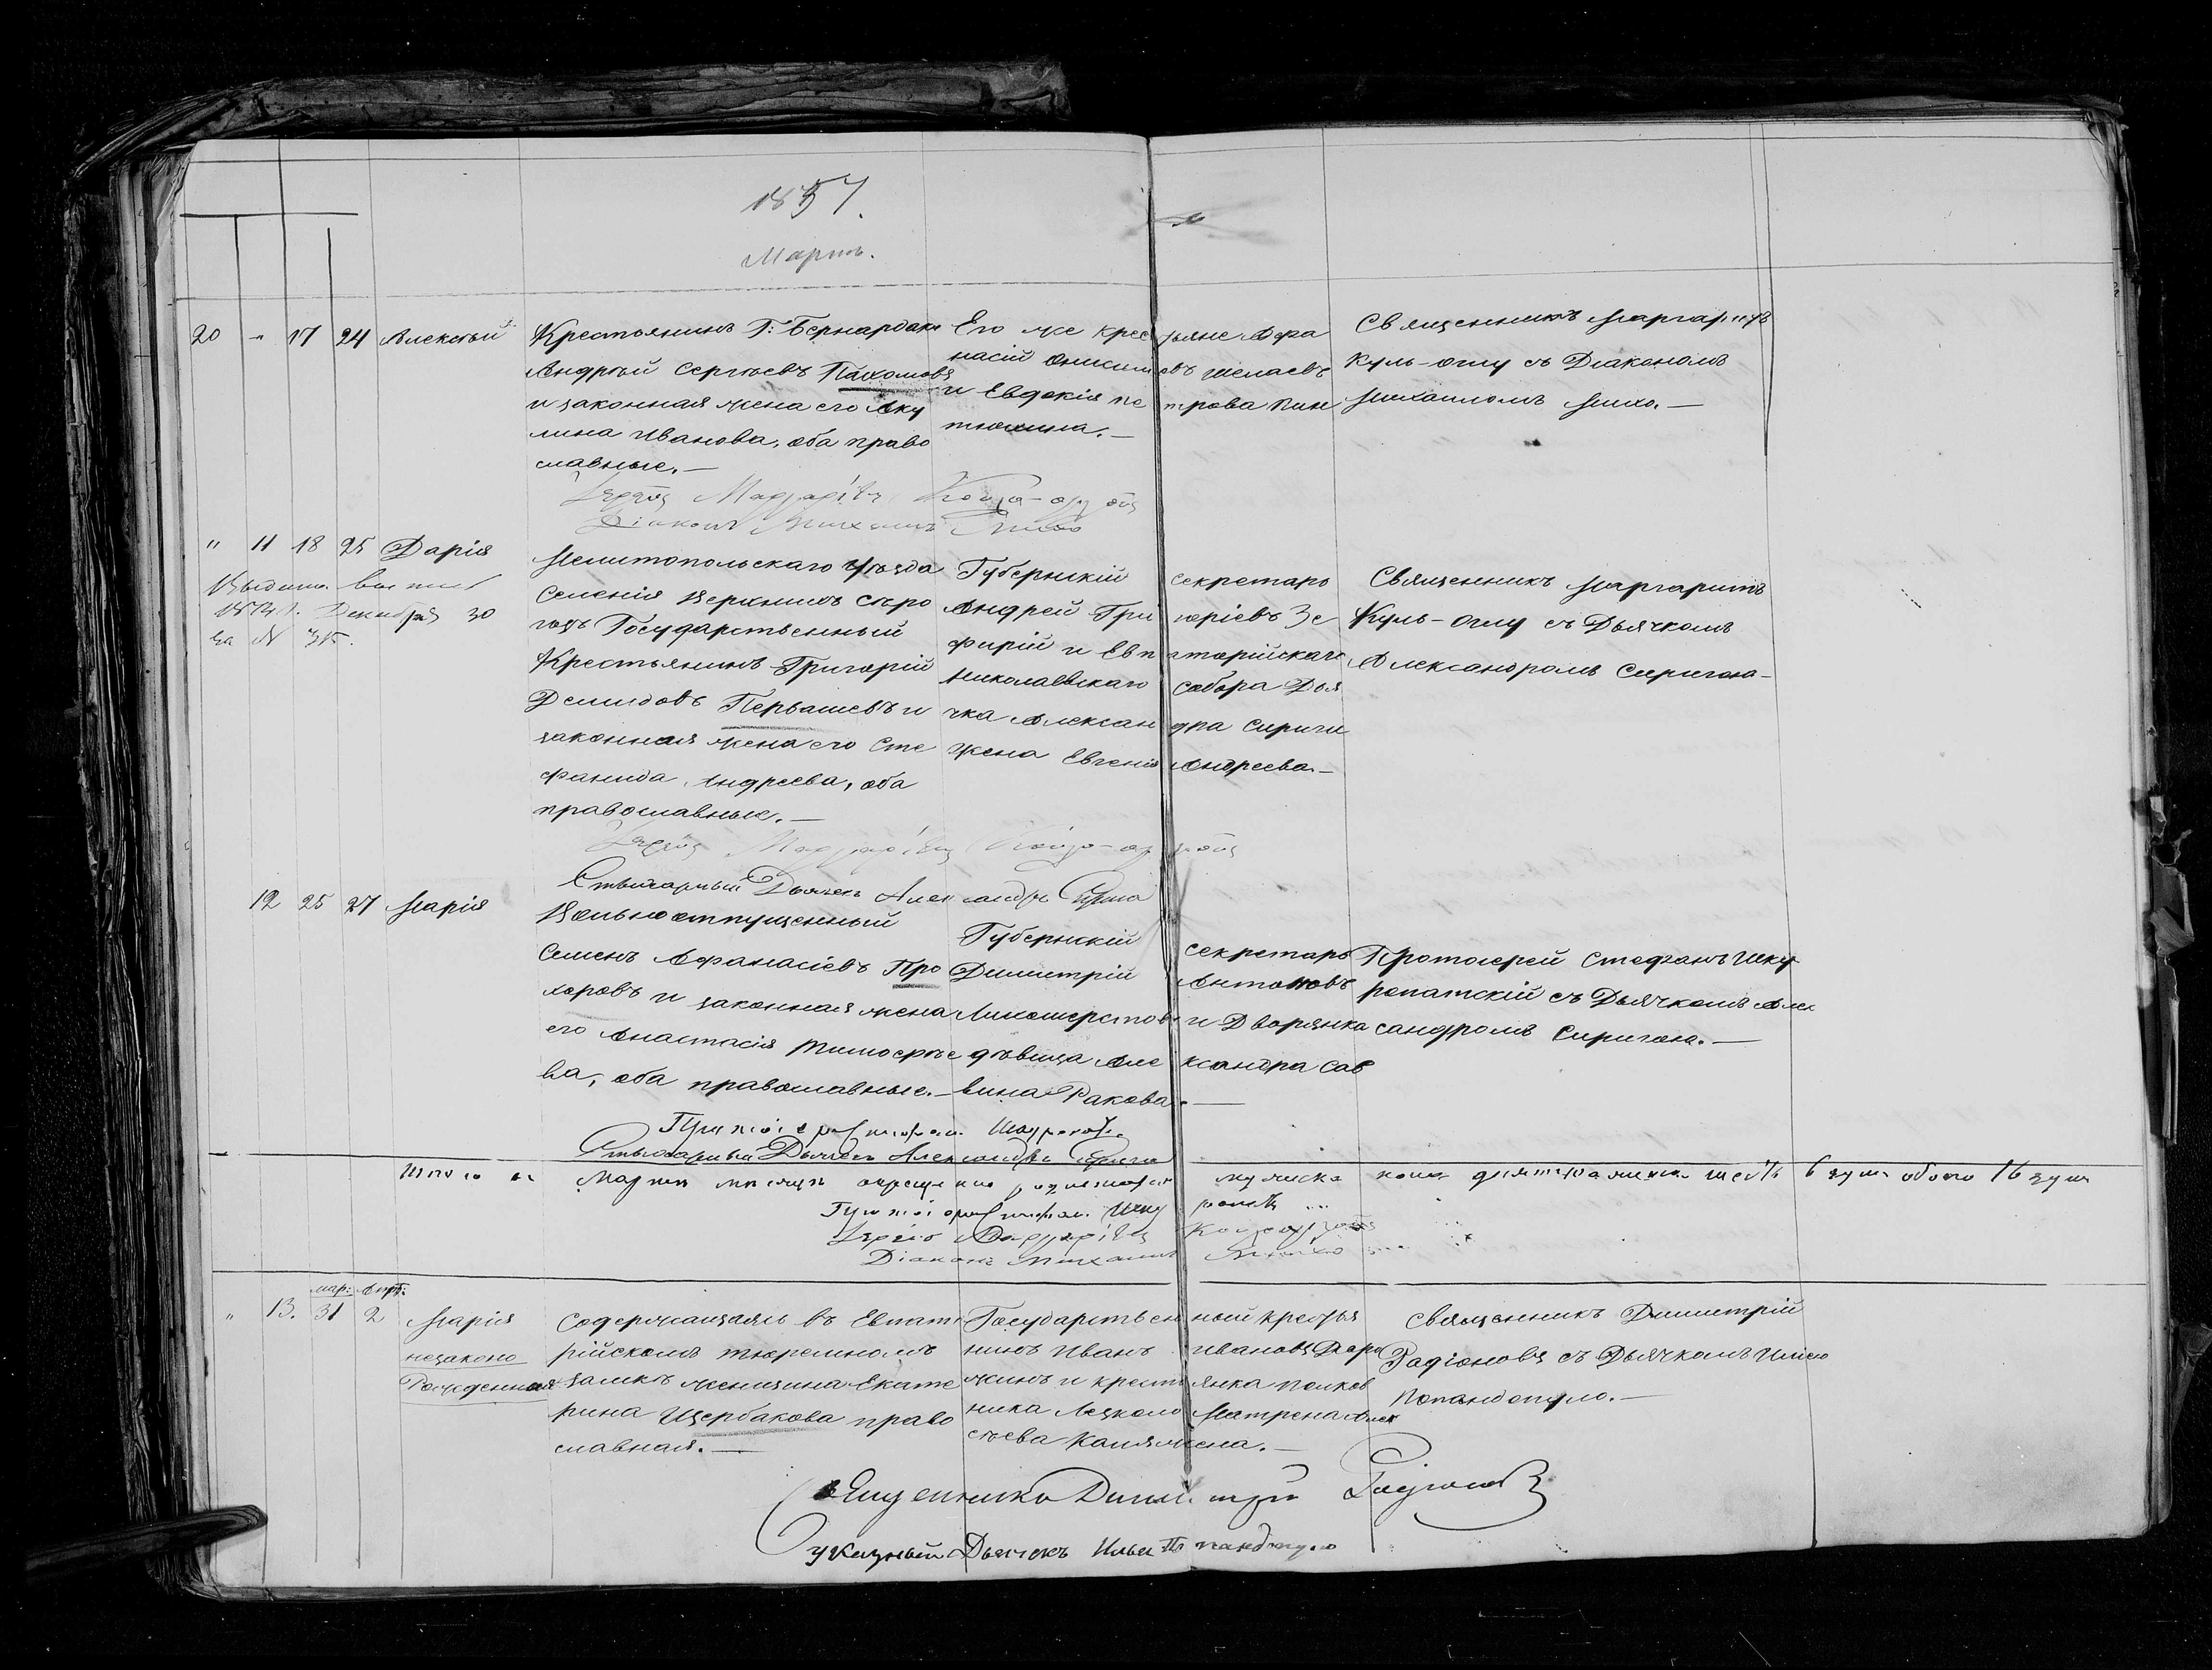 1857.
Мартъ.
20 " 17 24 Алексѣй
Крестьянинъ Г: Бернардаки
Андрей Сергѣевъ Пахомовъ
и законная жена его Аку
лина Иванова, оба право
славные.—
Его же крестьяне Афа
насій Онисимовъ Шелаевъ
и Евдокія Петрова Пин
тюхина.—
Священникъ Маргаритъ
Куль-оглу съ Діакономъ
Михаиломъ Михо.—
Діаконъ Михаилъ Михо
" 11 18 25 Дарія
Декабря 30
за №
Мелитопольскаго уѣзда
Селенія Верхнихъ Сѣро
гозъ Государственный
Крестьянинъ Григорій
Демидовъ Первашевъ и
законная жена его Сте
фанида Андреева, оба
православные.—
Губернскій секретарь
Андрей Григоріевъ Зе
фирій и Евпаторійскаго
Николаевскаго собора Дья
чка Александра Сириги
жена Евгенія Андреева.—
Священникъ Маргаритъ
Куль-оглу съ Дьячкомъ
Александромъ Сиригою.—
Дьячекъ Александръ
12 25 27 Марія
Вольноотпущенный
Семенъ Афанасіевъ Про
хоровъ и законная жена
его Анастасія Тимофѣе
ва, оба православные.—
Губернскій секретарь
Димитрій Антоновъ
Лихошерстовъ и Дворянка
дѣвица Александра Сав
вина Ракова.—
Протоіерей Стефанъ Шку
ропатскій съ Дьячкомъ Алек
сандромъ Сиригою.—
Дьячекъ Александръ
Итого въ Мартѣ мѣсяцѣ мужска пола женска шесть 6 душ обоего 16 душ
Діаконъ Михаилъ Михо
мар: Апр:
" 13. 31 2 Марія
незаконо
Рожденная
Содержащаяся въ Евпато
рійскомъ тюремномъ
замкѣ женщина Екате
рина Щербакова право
славная.—
Государственный крестья
нинъ Иванъ Ивановъ
жинъ и крестьянка полков
ника Матрена Алек
сѣева
Священникъ Димитрій
Радіоновъ съ Дьячкомъ Ильею
Попандопуло.—
Священникъ Димитрій Радіоновъ
указный Дьячекъ Илья Попандопуло